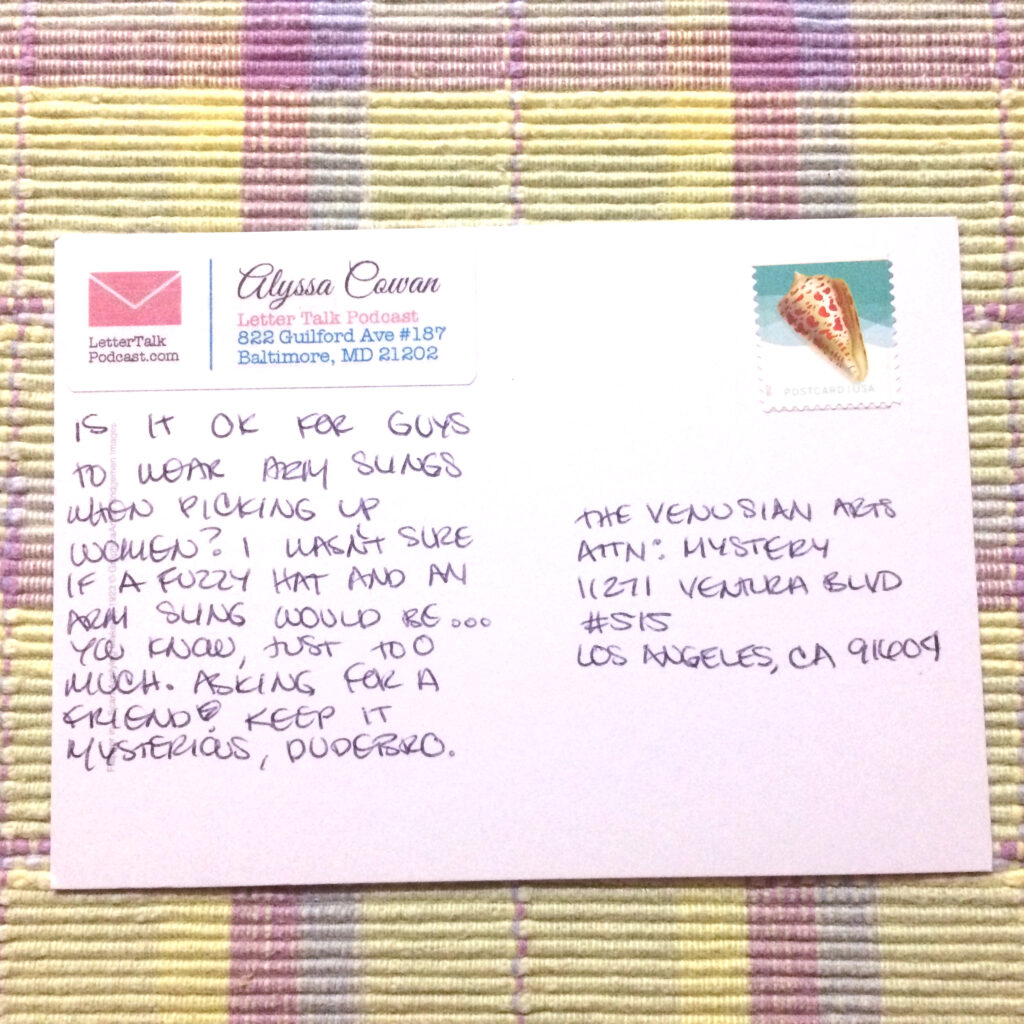 LetterTalk
Podcast.com
Alyssa Cowan
Letter Talk Podcast
822 Guilford Ave #187
Baltimore, MD 21202
POSTCARD USA
IS IT OK FOR GUYS
TO WEAR ARM SLINGS
WHEN PICKING UP
WOMEN? I WASN'T SURE
IF A FUZZY HAT AND AN
ARM SLING WOULD BE...
YOU KNOW, JUST TOO
MUCH. ASKING FOR A
FRIEND. KEEP IT
MYSTERIOUS, DUDEBRO.
THE VENUSIAN ARTS
ATTN: MYSTERY
11271 VENTURA BLVD
#515
LOS ANGELES, CA 91604